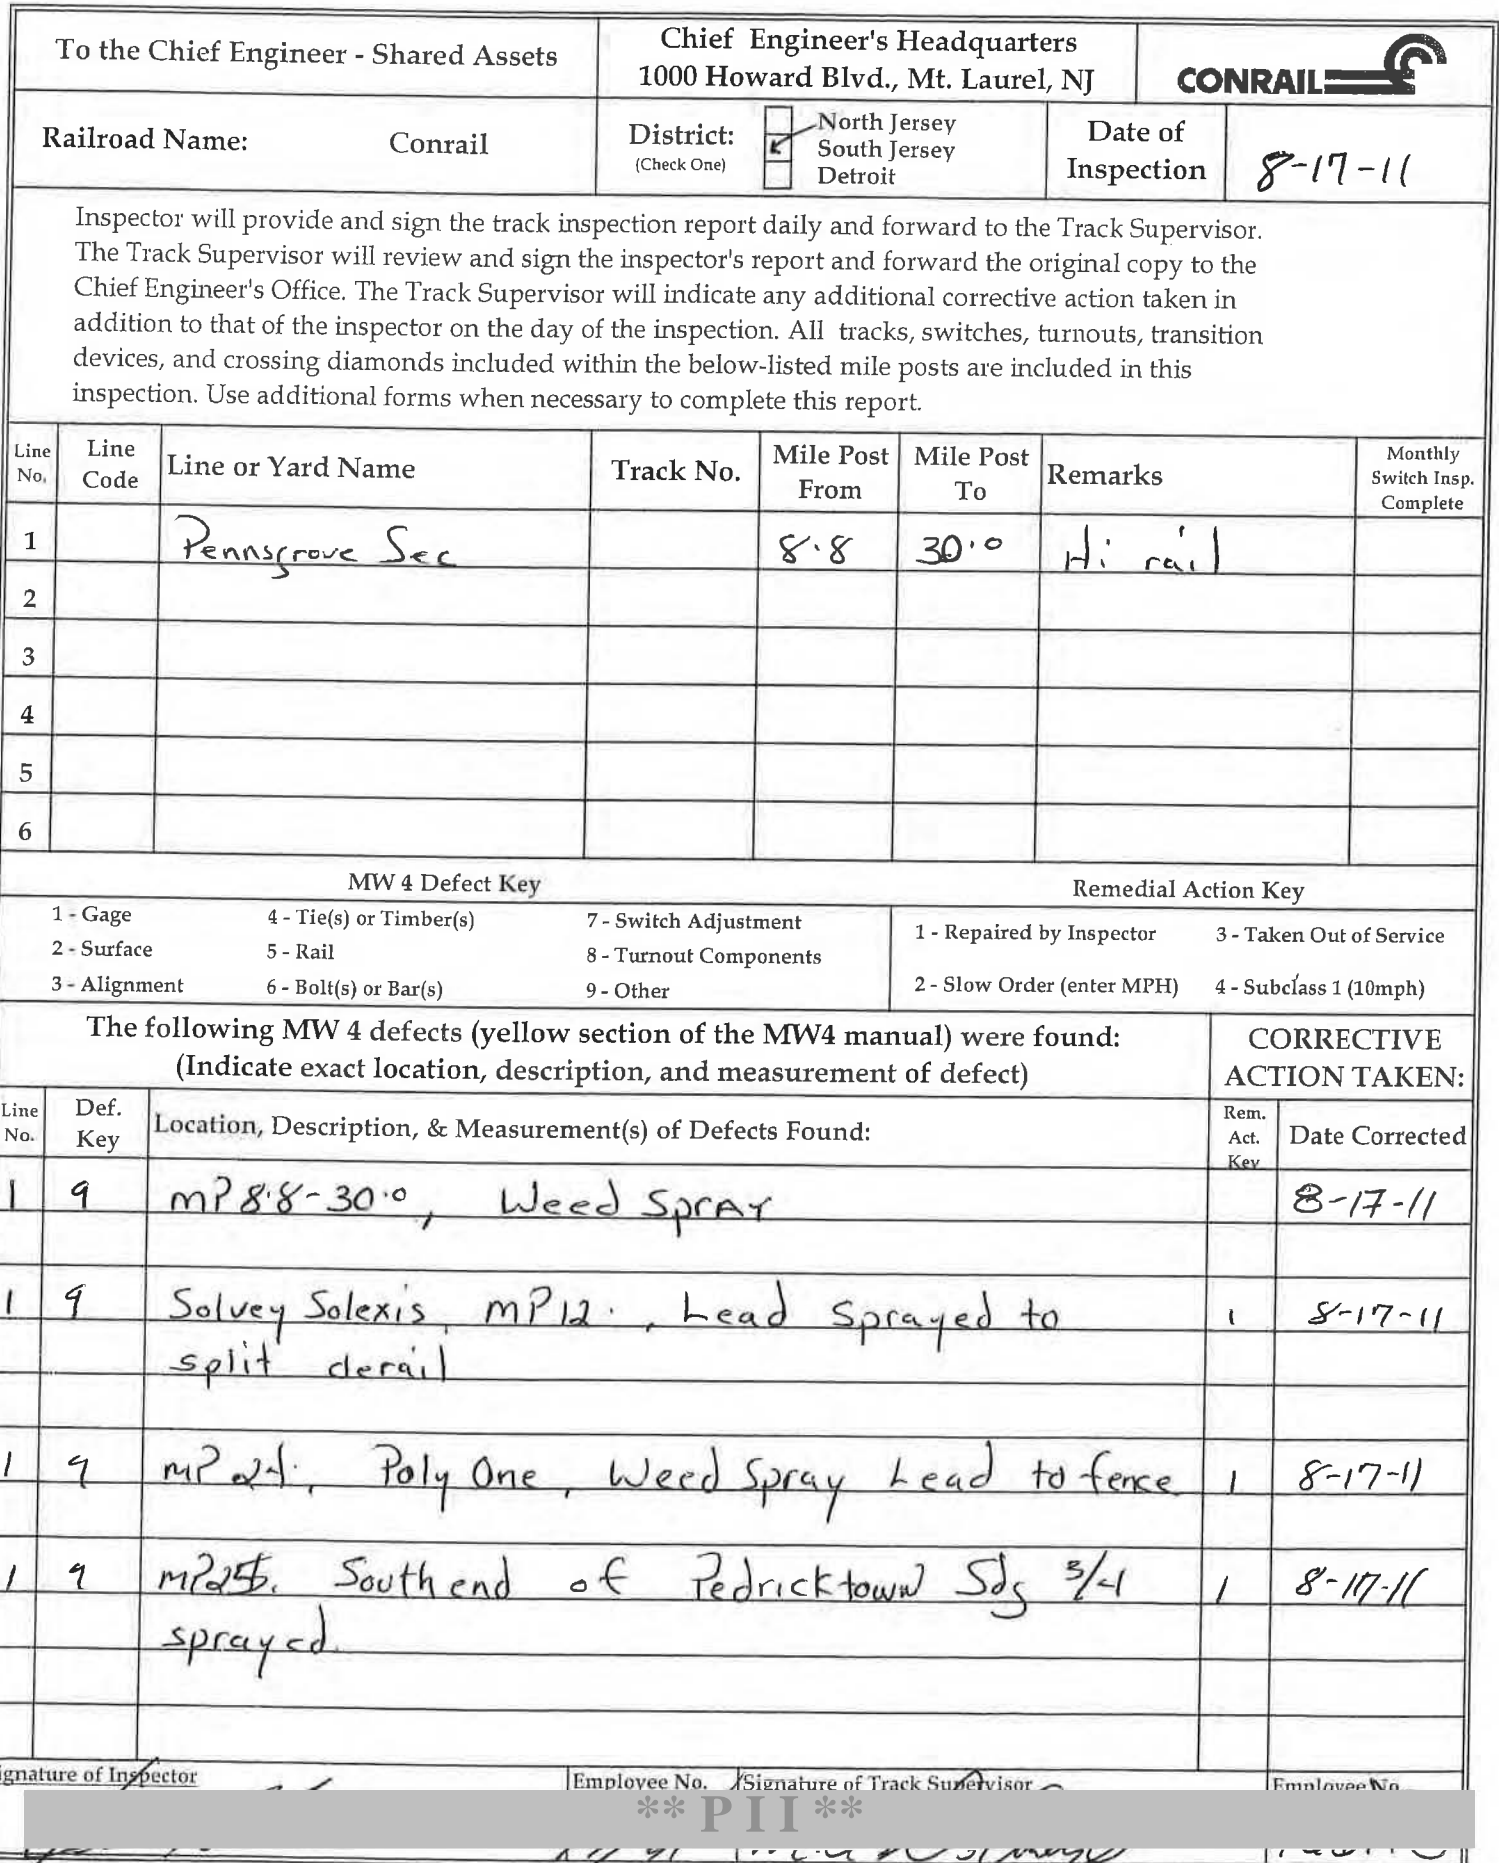 To the Chief Engineer - Shared Assets
Chief Engineer's Headquarters
1000 Howard Blvd., Mt. Laurel, NJ
CONRAIL
Railroad Name: Conrail
District:
(Check One)
North Jersey
South Jersey
Detroit
Date of
Inspection
8-17-11
Inspector will provide and sign the track inspection report daily and forward to the Track Supervisor.
The Track Supervisor will review and sign the inspector's report and forward the original copy to the
Chief Engineer's Office. The Track Supervisor will indicate any additional corrective action taken in
addition to that of the inspector on the day of the inspection. All tracks, switches, turnouts, transition
devices, and crossing diamonds included within the below-listed mile posts are included in this
inspection. Use additional forms when necessary to complete this report.
Line No. Line Code Line or Yard Name Track No. Mile Post From Mile Post To Remarks Monthly Switch Insp. Complete
1 Pennsgrove Sec 8.8 30.0 Hi rail
2
3
4
5
6
MW 4 Defect Key
Remedial Action Key
1 - Gage 4 - Tie(s) or Timber(s) 7 - Switch Adjustment
2 - Surface 5 - Rail 8 - Turnout Components
3 - Alignment 6 - Bolt(s) or Bar(s) 9 - Other
1 - Repaired by Inspector 3 - Taken Out of Service
2 - Slow Order (enter MPH) 4 - Subclass 1 (10mph)
The following MW 4 defects (yellow section of the MW4 manual) were found:
(Indicate exact location, description, and measurement of defect)
CORRECTIVE
ACTION TAKEN:
Line No. Def. Key Location, Description, & Measurement(s) of Defects Found: Rem. Act. Key Date Corrected
1 9 MP 8.8-30.0, Weed Spray 8-17-11
1 9 Solvey Solexis, MP12. , Lead Sprayed to 1 8-17-11
split derail
1 9 MP 24., Poly One, Weed Spray Lead to fence 1 8-17-11
1 9 South end of Pedricktown Sdg 3/4 1 8-17-11
sprayed.
ignature of Inspector Employee No. Signature of Track Supervisor Employee No.
**PII**